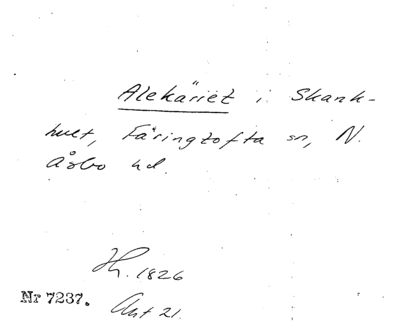 Alekäriet i Skank-
hult, Färingtofta sn, N.
Åsbo hd.
Hh. 1826
Nr 7237. Akt 21.